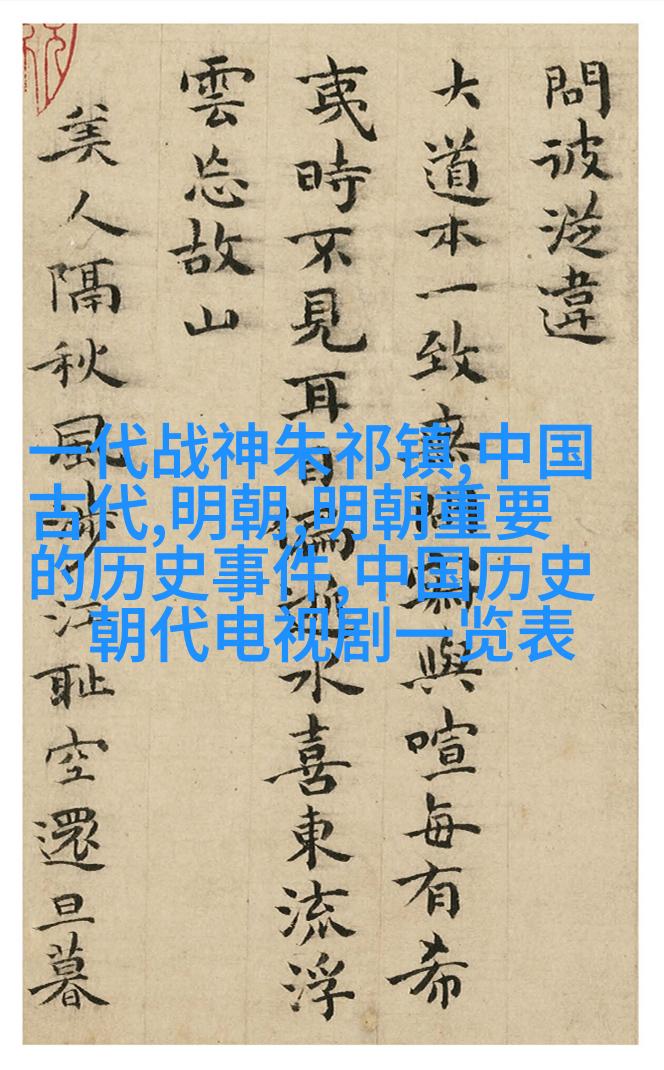 問彼從違
大道本一致與喧每有希
夷時不見耳目偏逝水喜東流浮
雲忘故山
美人隔秋風涉江恥空還旦暮
一代战神朱祁镇,中国
古代,明朝,明朝重要
的历史事件,中国历史
朝代电视剧一览表